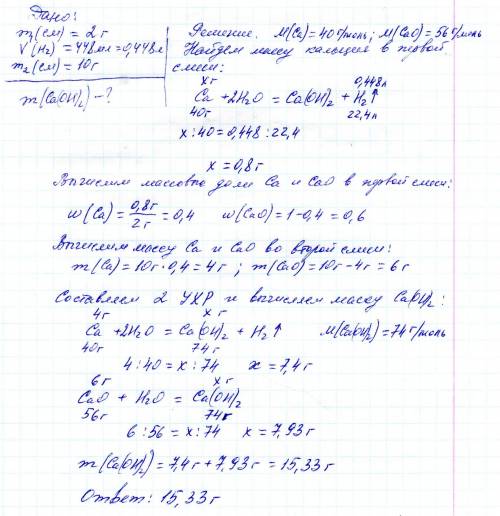 Дано:
m₁(см) = 2г
V(H₂) = 448мл = 0,448л
m₂(см) = 10г
m(Ca(OH)₂) – ?
Решение. M(Ca) = 40 г/моль; M(CaO) = 56 г/моль
Найдем массу кальция в первой
смеси:
xг 0,448л
Ca + 2H₂O = Ca(OH)₂ + H₂↑
40г 22,4л
x : 40 = 0,448 : 22,4
x = 0,8г
Вычислим массовые доли Ca и CaO в первой смеси:
w(Ca) = 0,8г/2г = 0,4 w(CaO) = 1 – 0,4 = 0,6
Вычислим массу Ca и CaO во второй смеси:
m(Ca) = 10г · 0,4 = 4г ; m(CaO) = 10г – 4г = 6г
Составляем 2 УХР и вычисляем массу Ca(OH)₂:
4г xг
Ca + 2H₂O = Ca(OH)₂ + H₂↑ M(Ca(OH)₂) = 74 г/моль
40г 74г
4 : 40 = x : 74 x = 7,4г
6г xг
CaO + H₂O = Ca(OH)₂
56г 74г
6 : 56 = x : 74 x = 7,93г
m(Ca(OH)₂) = 7,4г + 7,93г = 15,33г
Ответ: 15,33г